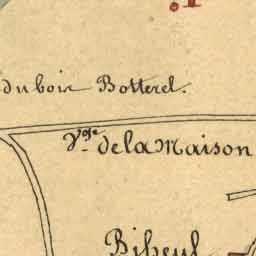 du bois Botterel.
V.ge de la Maison
Biheul